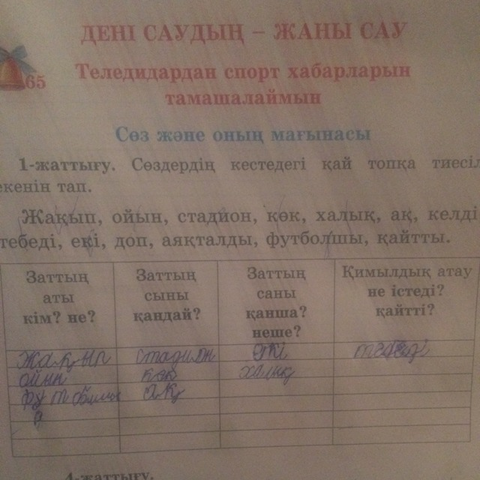 65
ДЕНІ САУДЫҢ – ЖАНЫ САУ
Теледидардан спорт хабарларын
тамашалаймын
Сөз және оның мағынасы
1-жаттығу. Сөздердің кестедегі қай топқа тиесіл
екенін тап.
Жақып, ойын, стадион, көк, халық, ақ, келді
тебеді, екі, доп, аяқталды, футболшы, қайтты.
Заттың аты кім? не?
Заттың сыны қандай?
Заттың саны қанша? неше?
Қимылдық атау не істеді? қайтті?
Жақып стадион екі тебеді
ойын көк халық
ақ
4-жаттығу.